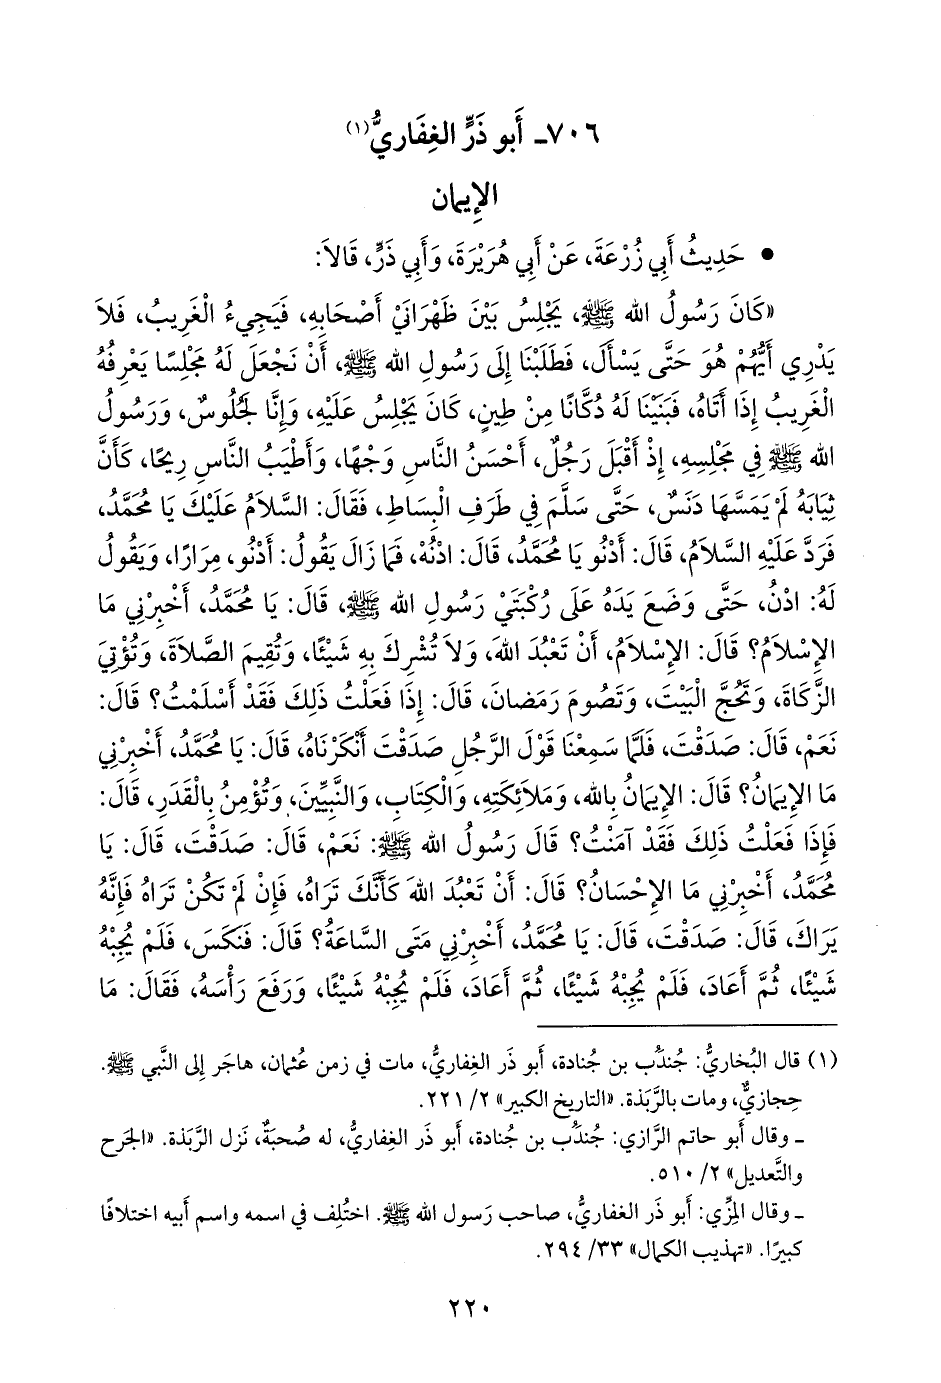 ٧٠٦ـ أَبو ذَرٍّ الغِفَاريُّ(١)
الإِيمان
• حَدِيثُ أَبِي زُرْعَةَ، عَنْ أَبِي هُرَيْرَةَ، وَأَبِي ذَرٍّ، قَالاَ:
«كَانَ رَسُولُ الله ﷺ، يَجْلِسُ بَيْنَ ظَهْرَانَيْ أَصْحَابِهِ، فَيَجِيءُ الْغَرِيبُ، فَلاَ
يَدْرِي أَيُّهُمْ هُوَ حَتَّى يَسْأَلَ، فَطَلَبْنَا إِلَى رَسُولِ الله ﷺ، أَنْ نَجْعَلَ لَهُ مَجْلِسًا يَعْرِفُهُ
الْغَرِيبُ إِذَا أَتَاهُ، فَبَنَيْنَا لَهُ دُكَّانًا مِنْ طِينٍ، كَانَ يَجْلِسُ عَلَيْهِ، وَإِنَّا لَجُلُوسٌ، وَرَسُولُ
الله ﷺ فِي مَجْلِسِهِ، إِذْ أَقْبَلَ رَجُلٌ، أَحْسَنُ النَّاسِ وَجْهًا، وَأَطْيَبُ النَّاسِ رِيحًا، كَأَنَّ
ثِيَابَهُ لَمْ يَمَسَّهَا دَنَسٌ، حَتَّى سَلَّمَ فِي طَرَفِ الْبِسَاطِ، فَقَالَ: السَّلاَمُ عَلَيْكَ يَا مُحَمَّدُ،
فَرَدَّ عَلَيْهِ السَّلاَمُ، قَالَ: أَدْنُو يَا مُحَمَّدُ، قَالَ: ادْنُهْ، فَمَا زَالَ يَقُولُ: أَدْنُو، مِرَارًا، وَيَقُولُ
لَهُ: ادْنُ، حَتَّى وَضَعَ يَدَهُ عَلَى رُكْبَتَيْ رَسُولِ الله ﷺ، قَالَ: يَا مُحَمَّدُ، أَخْبِرْنِي مَا
الإِسْلاَمُ؟ قَالَ: الإِسْلاَمُ، أَنْ تَعْبُدَ اللهَ، وَلاَ تُشْرِكَ بِهِ شَيْئًا، وَتُقِيمَ الصَّلاَةَ، وَتُؤْتِيَ
الزَّكَاةَ، وَتَحُجَّ الْبَيْتَ، وَتَصُومَ رَمَضانَ، قَالَ: إِذَا فَعَلْتُ ذَلِكَ فَقَدْ أَسْلَمْتُ؟ قَالَ:
نَعَمْ، قَالَ: صَدَقْتَ، فَلَمَّا سَمِعْنَا قَوْلَ الرَّجُلِ صَدَقْتَ أَنْكَرْنَاهُ، قَالَ: يَا مُحَمَّدُ، أَخْبِرْنِي
مَا الإِيمَانُ؟ قَالَ: الإِيمَانُ بِالله، وَمَلاَئِكَتِهِ، وَالْكِتَابِ، وَالنَّبِيِّينَ، وَتُؤْمِنُ بِالْقَدَرِ، قَالَ:
فَإِذَا فَعَلْتُ ذَلِكَ فَقَدْ آمَنْتُ؟ قَالَ رَسُولُ الله ﷺ: نَعَمْ، قَالَ: صَدَقْتَ، قَالَ: يَا
مُحَمَّدُ، أَخْبِرْنِي مَا الإِحْسَانُ؟ قَالَ: أَنْ تَعْبُدَ اللهَ كَأَنَّكَ تَرَاهُ، فَإِنْ لَمْ تَكُنْ تَرَاهُ فَإِنَّهُ
يَرَاكَ، قَالَ: صَدَقْتَ، قَالَ: يَا مُحَمَّدُ، أَخْبِرْنِي مَتَى السَّاعَةُ؟ قَالَ: فَنَكَسَ، فَلَمْ يُجِبْهُ
شَيْئًا، ثُمَّ أَعَادَ، فَلَمْ يُجِبْهُ شَيْئًا، ثُمَّ أَعَادَ، فَلَمْ يُجِبْهُ شَيْئًا، وَرَفَعَ رَأْسَهُ، فَقَالَ: مَا
(١) قال البُخاريُّ: جُندُب بن جُنادة، أَبو ذَر الغِفاريُّ، مات في زمن عُثمان، هاجَر إِلى النَّبي ﷺ.
حِجازيٌّ، ومات بالرَّبَذة. «التاريخ الكبير» ٢/ ٢٢١.
ـ وقال أَبو حاتم الرَّازي: جُندُب بن جُنادة، أَبو ذَر الغِفاريُّ، له صُحبَةٌ، نَزل الرَّبَذة. «الجَرح
والتَّعديل» ٢/ ٥١٠.
ـ وقال المِزِّي: أَبو ذَر الغفاريُّ، صاحب رَسول الله ﷺ. اختُلِف في اسمه واسم أَبيه اختلافًا
كبيرًا. «تهذيب الكمال» ٣٣/ ٢٩٤.
٢٢٠